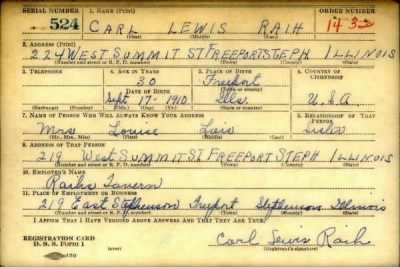 SERIAL NUMBER 1. NAME (Print) ORDER NUMBER
524 CARL LEWIS RAIH 1432
(First) (Middle) (Last)
2. ADDRESS (Print)
224 WEST SUMMIT ST FREEPORT STEPH ILLINOIS
(Number and street or R. F. D. number) (Town) (County) (State)
3. TELEPHONE 4. AGE IN YEARS 5. PLACE OF BIRTH 6. COUNTRY OF CITIZENSHIP
30 Freeport
DATE OF BIRTH (Town or county)
Sept 17- 1910 Ills. U.S.A
(Exchange) (Number) (Mo.) (Day) (Yr.) (State or country)
7. NAME OF PERSON WHO WILL ALWAYS KNOW YOUR ADDRESS 8. RELATIONSHIP OF THAT PERSON
Mrs Louise Lois Sister
(Mr., Mrs., Miss) (First) (Middle) (Last)
9. ADDRESS OF THAT PERSON
219 West SUMMIT ST FREEPORT STEPH ILLINOIS
(Number and street or R. F. D. number) (Town) (County) (State)
10. EMPLOYER'S NAME
Raihs Tavern
11. PLACE OF EMPLOYMENT OR BUSINESS
219 East Stephenson Freeport Stephenson Illinois
(Number and street or R. F. D. number) (Town) (County) (State)
I AFFIRM THAT I HAVE VERIFIED ABOVE ANSWERS AND THAT THEY ARE TRUE.
REGISTRATION CARD
D. S. S. Form 1 Carl Lewis Raih
(Registrant's signature)